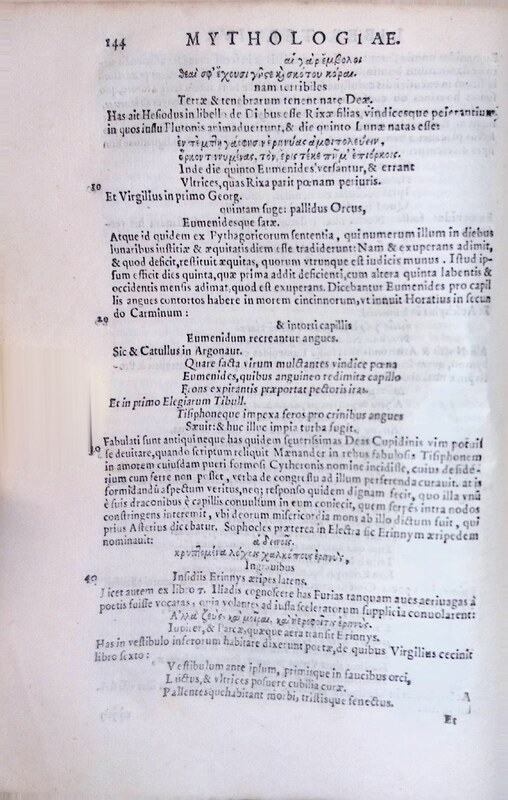 144 MYTHOLOGIAE.
αἱ γὰρ ἔμβολοι
θεαί σφ' ἔχουσι γῆς κ σκότου κόραι.
nam terribiles
Terræ & tenebrarum tenent nate Deæ.
Has ait Hesiodus in libello de Diebus esse Rixæ filias, vindicesque peierantium
in quos iussu Plutonis animaduertunt, & die quinto Lunæ natas esse:
ἐν πέμπτῃ γάρ φασιν ἐριννύας ἀμφιπολεύειν,
ὅρκον τιννυμένας, τὸν ἔρις τέκε πῆμ' ἐπιόρκοις.
Inde die quinto Eumenides versantur, & errant
Vltrices, quas Rixa parit pœnam periuris.
10
Et Virgilius in primo Georg.
quintam fuge: pallidus Orcus,
Eumenidesque satæ.
Atque id quidem ex Pythagoricorum sententia, qui numerum illum in diebus
lunaribus iustitiæ & æquitatis diem esse tradiderunt: Nam & exuperans adimit,
& quod deficit, restituit æquitas, quorum vtrunque est iudicis munus. Istud ip-
sum efficit dies quinta, quæ prima addit deficienti, cum altera quinta labentis &
occidentis mensis adimat, quod est exuperans. Dicebantur Eumenides pro capil
lis angues contortos habere in morem cincinnorum, vt innuit Horatius in secun
20
do Carminum:
& intorti capillis
Eumenidum recreantur angues.
Sic & Catullus in Argonaut.
Quare facta virum mulctantes vindice pœna
Eumenides, quibus anguineo redimita capillo
Frons expirantis præportat pectoris iras.
Et in primo Elegiarum Tibull.
Tisiphoneque impexa feros pro crinibus angues
Sæuit: & huc illuc impia turba fugit.
30
Fabulati sunt antiqui neque has quidem seuerissimas Deas Cupidinis vim potuis
se deuitare, quando scriptum reliquit Mænander in rebus fabulosis, Tisiphonem
in amorem cuiusdam pueri formosi Cytheronis nomine incidisse, cuius deside-
rium cum ferre non posset, verba de congressu ad illum perferenda curauit. at is
formidandū aspectum veritus, neq; responso quidem dignam fecit, quo illa vnū
è suis draconibus è capillis conuulsum in eum coniecit, quem serpēs intra nodos
constringens interemit, vbi deorum misericordia mons ab illo dictum fuit, qui
prius Asterius dicebatur. Sophocles præterea in Electra sic Erinnym æripedem
nominauit:
ἁ δεινοῖς
κρυπτομένα λόχοις χαλκόπους ἐριννύς,
Ingrauibus
40
Insidiis Erinnys æripes latens.
Licet autem ex libro 7. Iliadis cognoscere has Furias tanquam aues aeriuagas à
poetis fuisse vocatas, quia volantes ad iussa sceleratorum supplicia conuolarent:
Ἀλλὰ ζεὺς καὶ μοῖραι, καὶ ἠεροφοῖτις ἐριννύς.
Iupiter, & Parcæ, quæque aera transit Erinnys.
Has in vestibulo inferorum habitare dixerunt poetæ, de quibus Virgilius cecinit
libro sexto:
Vestibulum ante ipsum, primisque in faucibus orci,
Luctus, & vltrices posuere cubilia curæ.
Pallentesque habitant morbi, tristisque senectus.
Et